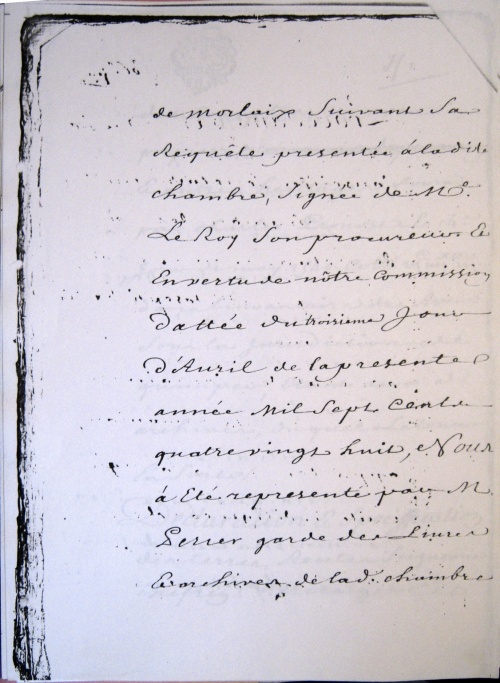 de morlaix Suivant Sa
Requête presentée à ladite
chambre, Signée de Me.
Le Roy Son procureur Et
En vertu de nôtre Commission
Dattée du troisieme Jour
d'Auril de la presente
année Mil Sept Cent
quatre vingt huit, Nous
à Eté representé par M
garde des Liures
Et archives de lad. chambre